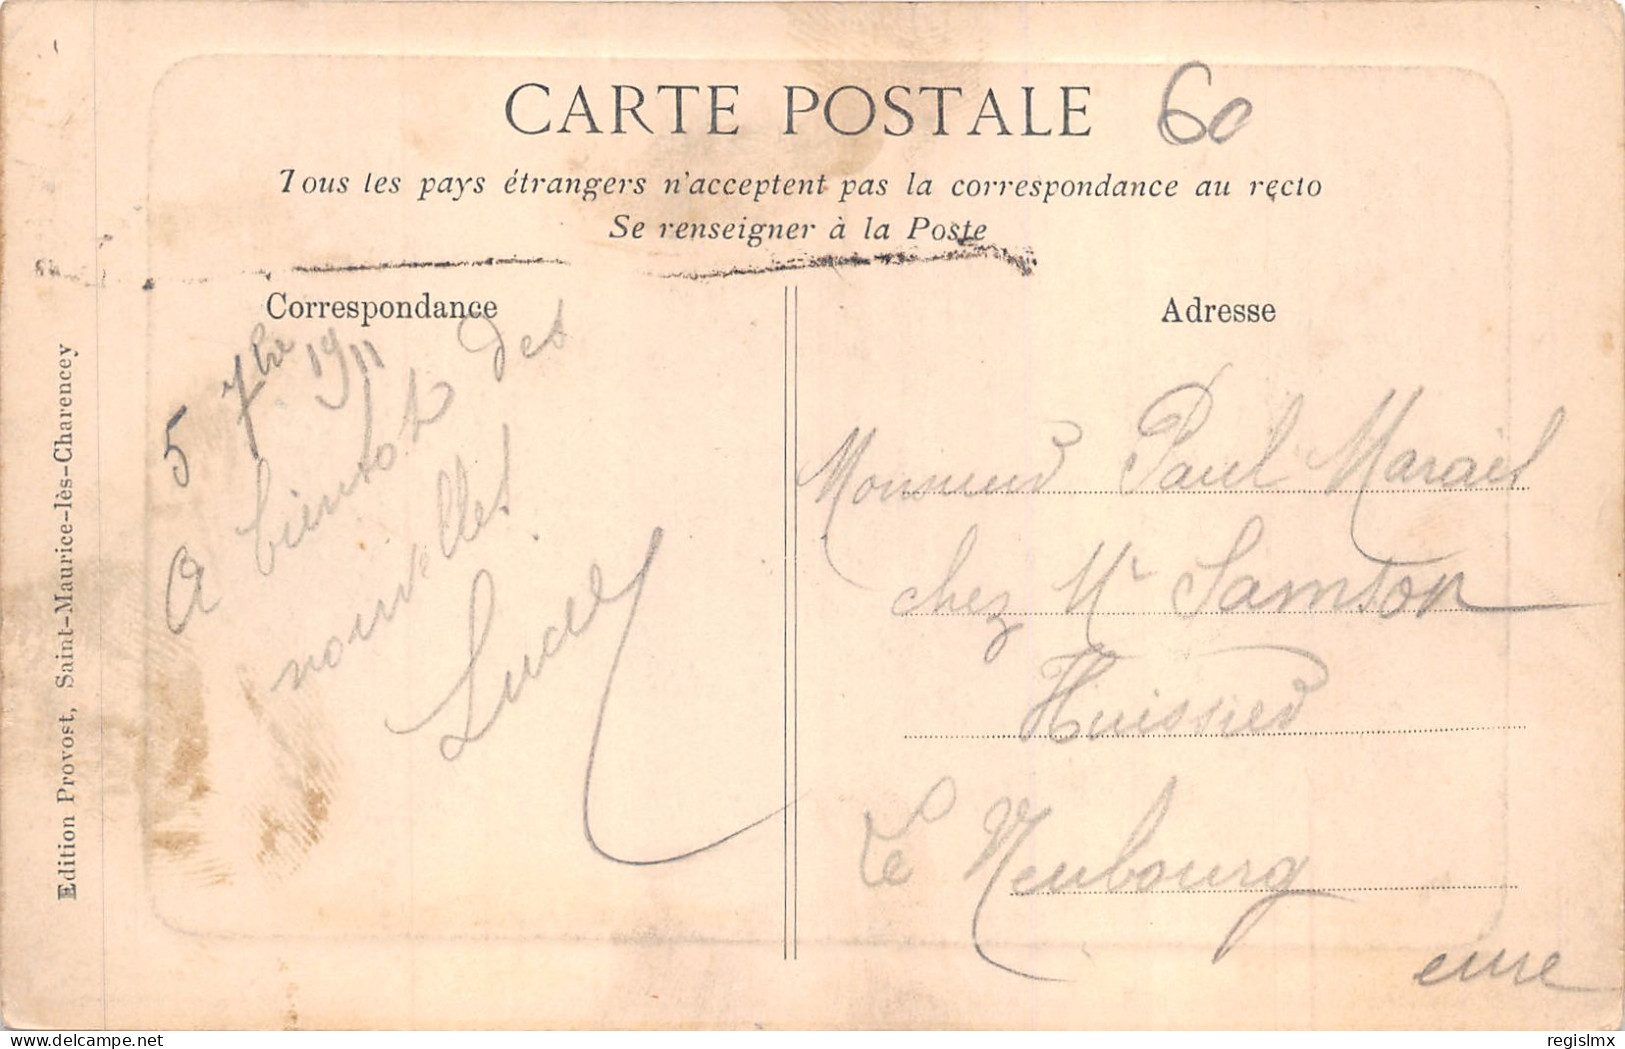 CARTE POSTALE 60
Tous les pays étrangers n'acceptent pas la correspondance au recto
Se renseigner à la Poste
Correspondance
5 7bre 1911
A bientot des
nouvelles
Adresse
Monsieur Paul Marais
chez Mr Samson
Huissier
Le Neubourg
eure
Edition Provost, Saint-Maurice-lès-Charencey
delcampe.net
regislmx